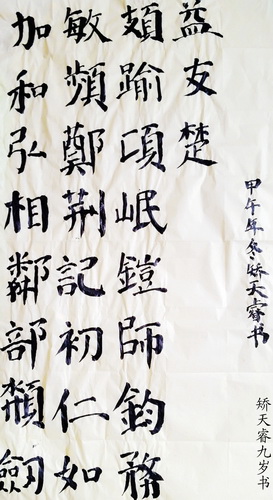 加和弘相鄰部
敏頻鄭荆記初仁如
踰岷鎧師鈞務
益友楚
甲午年冬矫天睿书
矫天睿九岁书